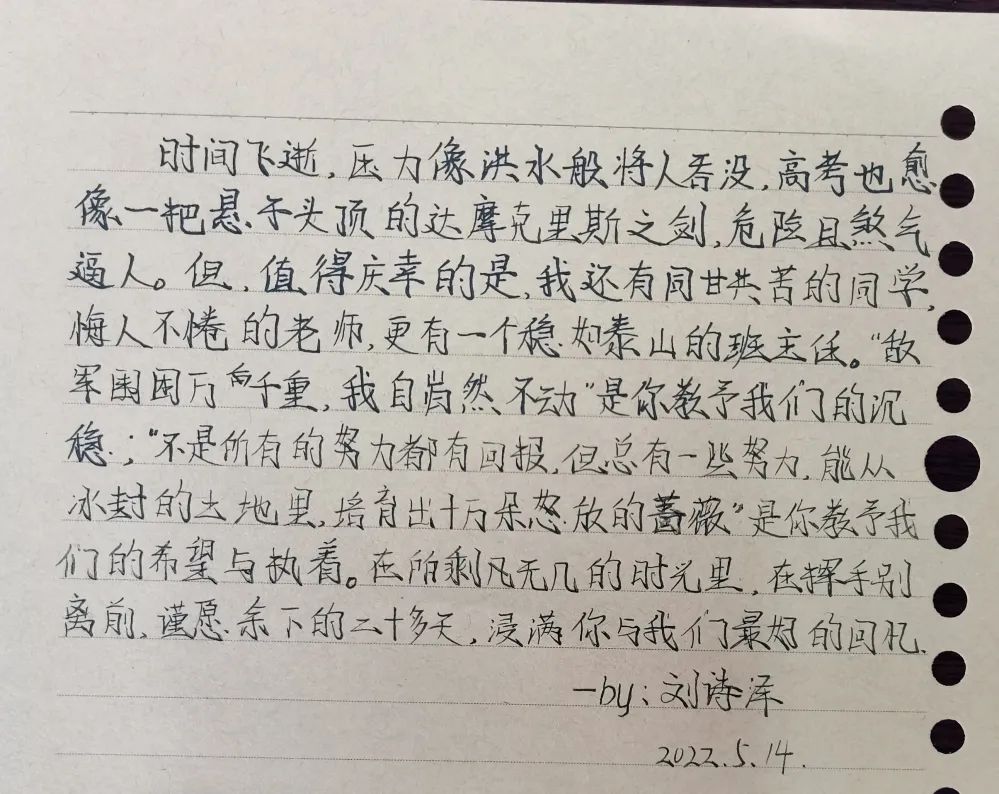 时间飞逝,压力像洪水般将人吞没,高考也愈
像一把悬于头顶的达摩克里斯之剑,危险且煞气
逼人。但,值得庆幸的是,我还有同甘共苦的同学,
悔人不惓的老师,更有一个稳如泰山的班主任。“敌
军围困万向千重,我自岿然不动”是你教予我们的沉
稳;“不是所有的努力都有回报,但总有一些努力,能从
冰封的土地里,培育出十万朵怒放的蔷薇”是你教予我
们的希望与执着。在所剩凡无几的时光里,在挥手别
离前,谨愿余下的二十多天,浸满你与我们最好的回忆.
—by:刘诗泽
2022.5.14.